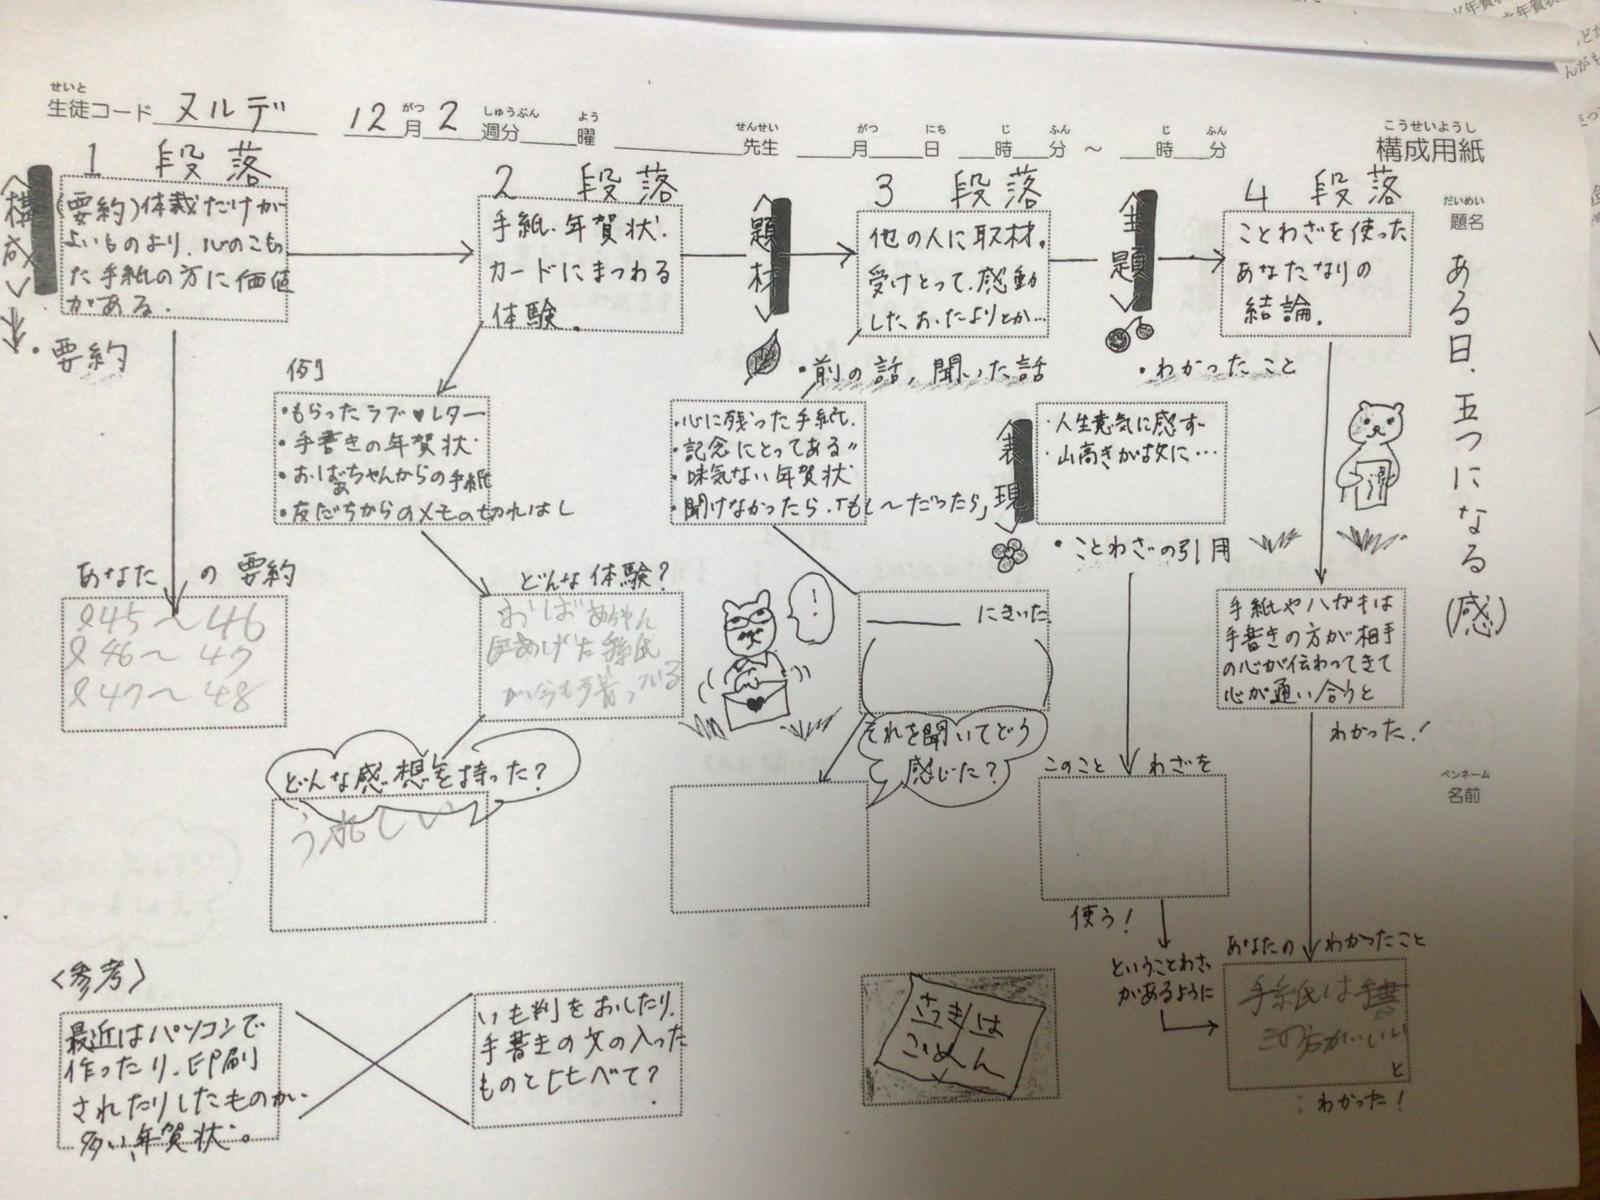 せいと
生徒コード ヌルデ
12月2週分 曜
がつ しゅうぶん よう
せんせい
先生
がつ にち じ ふん じ ふん
月 日 時 分 ～ 時 分
こうせいようし
構成用紙
だいめい
題名
ある日、五つになる (感)
ペンネーム
名前
1 段落
〈構成〉
(要約)体裁だけが
よいものより、心のこもっ
た手紙の方に価値
がある.
・要約
あなたの要約
l45～46
l46～47
l47～48
2 段落
手紙、年賀状.
カードにまつわる
体験.
例
・もらったラブ♥レター
・手書きの年賀状
・おばあちゃんからの手紙
・友だちからのメモの切れはし
どんな体験?
おばあちゃん
にあげた手紙
が今も残っている
どんな感想を持った?
うれしい
〈題材〉
3 段落
他の人に取材。
受けとって、感動
した、おたよりとか…
・前の話, 聞いた話
・心に残った手紙.
・記念にとってある〃
・味気ない年賀状
・聞けなかったら、「もし～だったら」
にきいた
それを聞いてどう
感じた?
〈主題〉
4 段落
ことわざを使った
あなたなりの
結論.
・わかったこと
〈表現〉
・人生意気に感ず
・山高きが故に…
・ことわざの引用
このことわざを
使う!
ということわざ
があるように
手紙やハガキは
手書きの方が相手
の心が伝わってきて
心が通い合うと
わかった!
あなたのわかったこと
手紙は手書
きの方がいい
と
わかった!
!
〈参考〉
最近はパソコンで
作ったり、印刷
されたりしたものが、
多い、年賀状。
いも判をおしたり、
手書きの文の入った
ものと比べて?
さっきは
ごめん